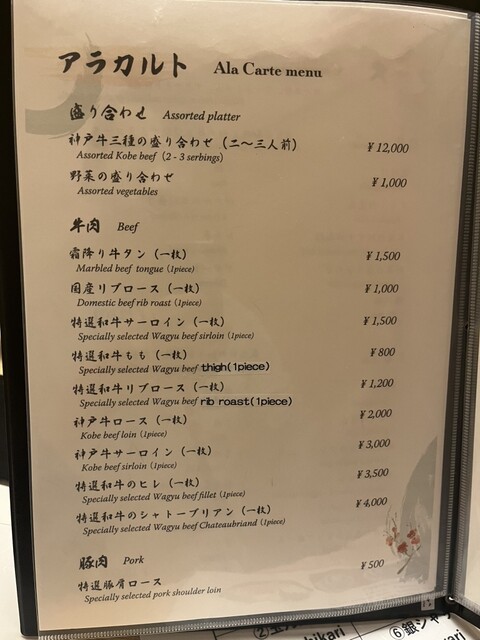 アラカルト Ala Carte menu
盛り合わせ Assorted platter
神戸牛三種の盛り合わせ（二〜三人前） ¥12,000
Assorted Kobe beef (2 - 3 serbings)
野菜の盛り合わせ ¥1,000
Assorted vegetables
牛肉 Beef
霜降り牛タン（一枚） ¥1,500
Marbled beef tongue (1piece)
国産リブロース（一枚） ¥1,000
Domestic beef rib roast (1piece)
特選和牛サーロイン（一枚） ¥1,500
Specially selected Wagyu beef sirloin (1piece)
特選和牛もも（一枚） ¥800
Specially selected Wagyu beef thigh(1piece)
特選和牛リブロース（一枚） ¥1,200
Specially selected Wagyu beef rib roast(1piece)
神戸牛ロース（一枚） ¥2,000
Kobe beef loin (1piece)
神戸牛サーロイン（一枚） ¥3,000
Kobe beef sirloin (1piece)
特選和牛のヒレ（一枚） ¥3,500
Specially selected Wagyu beef fillet (1piece)
特選和牛のシャトーブリアン（一枚） ¥4,000
Specially selected Wagyu beef Chateaubriand (1piece)
豚肉 Pork
特選豚肩ロース ¥500
Specially selected pork shoulder loin
⑥銀シャ
hikari